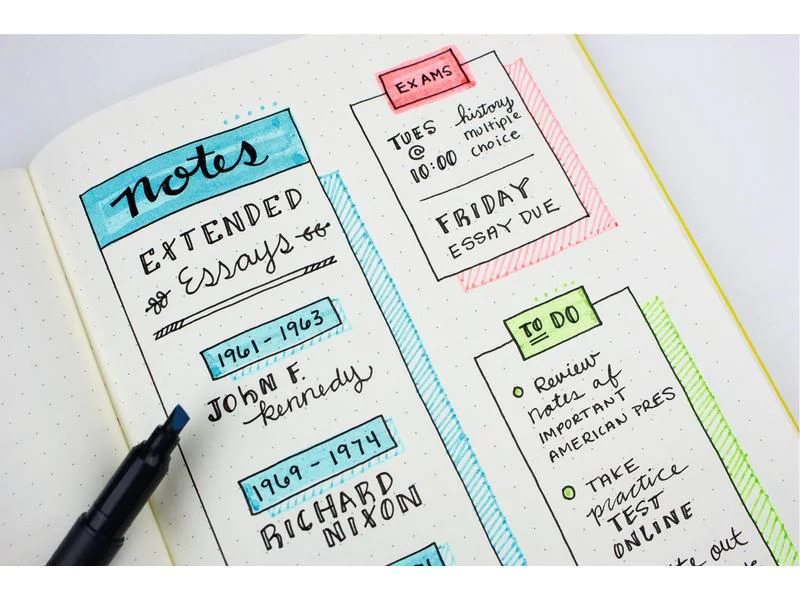 notes
EXTENDED
Essays
1961 - 1963
JOHN F.
Kennedy
1969 - 1974
RICHARD
NIXON
EXAMS
TUES
@
10:00
history
multiple
choice
FRIDAY
ESSAY DUE
TO DO
Review
notes of
IMPORTANT
AMERICAN PRES
TAKE
practice
TEST
ONLINE
out